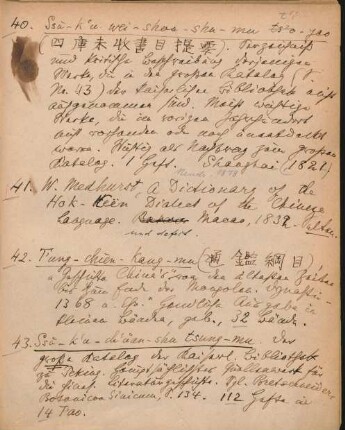 40. Ssŭ-k'u-wei-shou-shu-mu
(四庫未收書目提要). Verzeichniß
und kritische Beschreibung derjenigen
Werke, die in den großen Katalog (
No. 43) der kaiserlichen Bibliothek nicht
aufgenommen sind. Meist wichtige
Werke, die im vorigen Jahrhundert
nicht vorhanden oder noch unentdeckt
waren. Wichtig als Nachtrag zum großen
Katalog. 1 Heft. Shanghai (1821)
41. W. Medhurst, A Dictionary of the
Hok-Këèn Dialect of the Chinese
Language. Macao, 1832.
42. T'ung-chien-kang-mu (通鑑綱目)
Geschichte China's von den ältesten Zeiten
bis zum Ende der Mongolen-Dynastie
1368 n. Chr. Ausgabe in
kleinen Bänden, geb., 52 Bände.
43. Ssŭ-k'u-ch'üan-shu tsung-mu. Der
große Katalog der Kaiserl. Bibliothek
zu Peking.
die chines. Literaturgeschichte. Vgl. Bretschneider
Botanicon Sinicum, p. 134. 112 Hefte in
14 Tao.